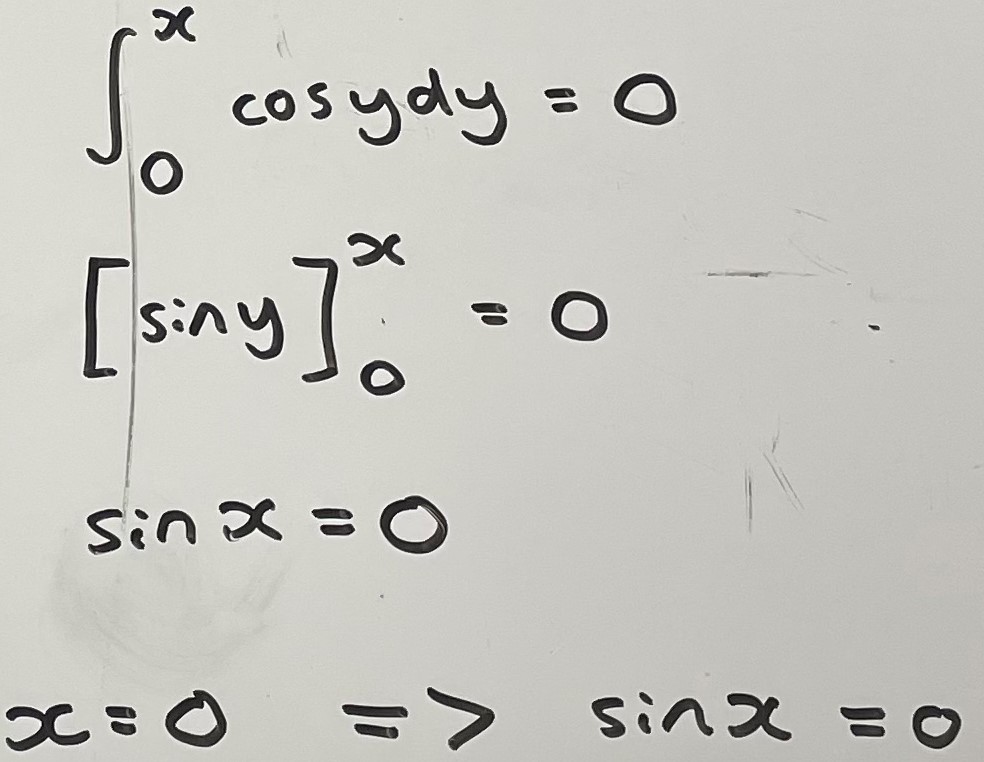 ∫₀ˣ cosydy = 0
[siny]₀ˣ = 0
sinx = 0
x=0 => sinx = 0